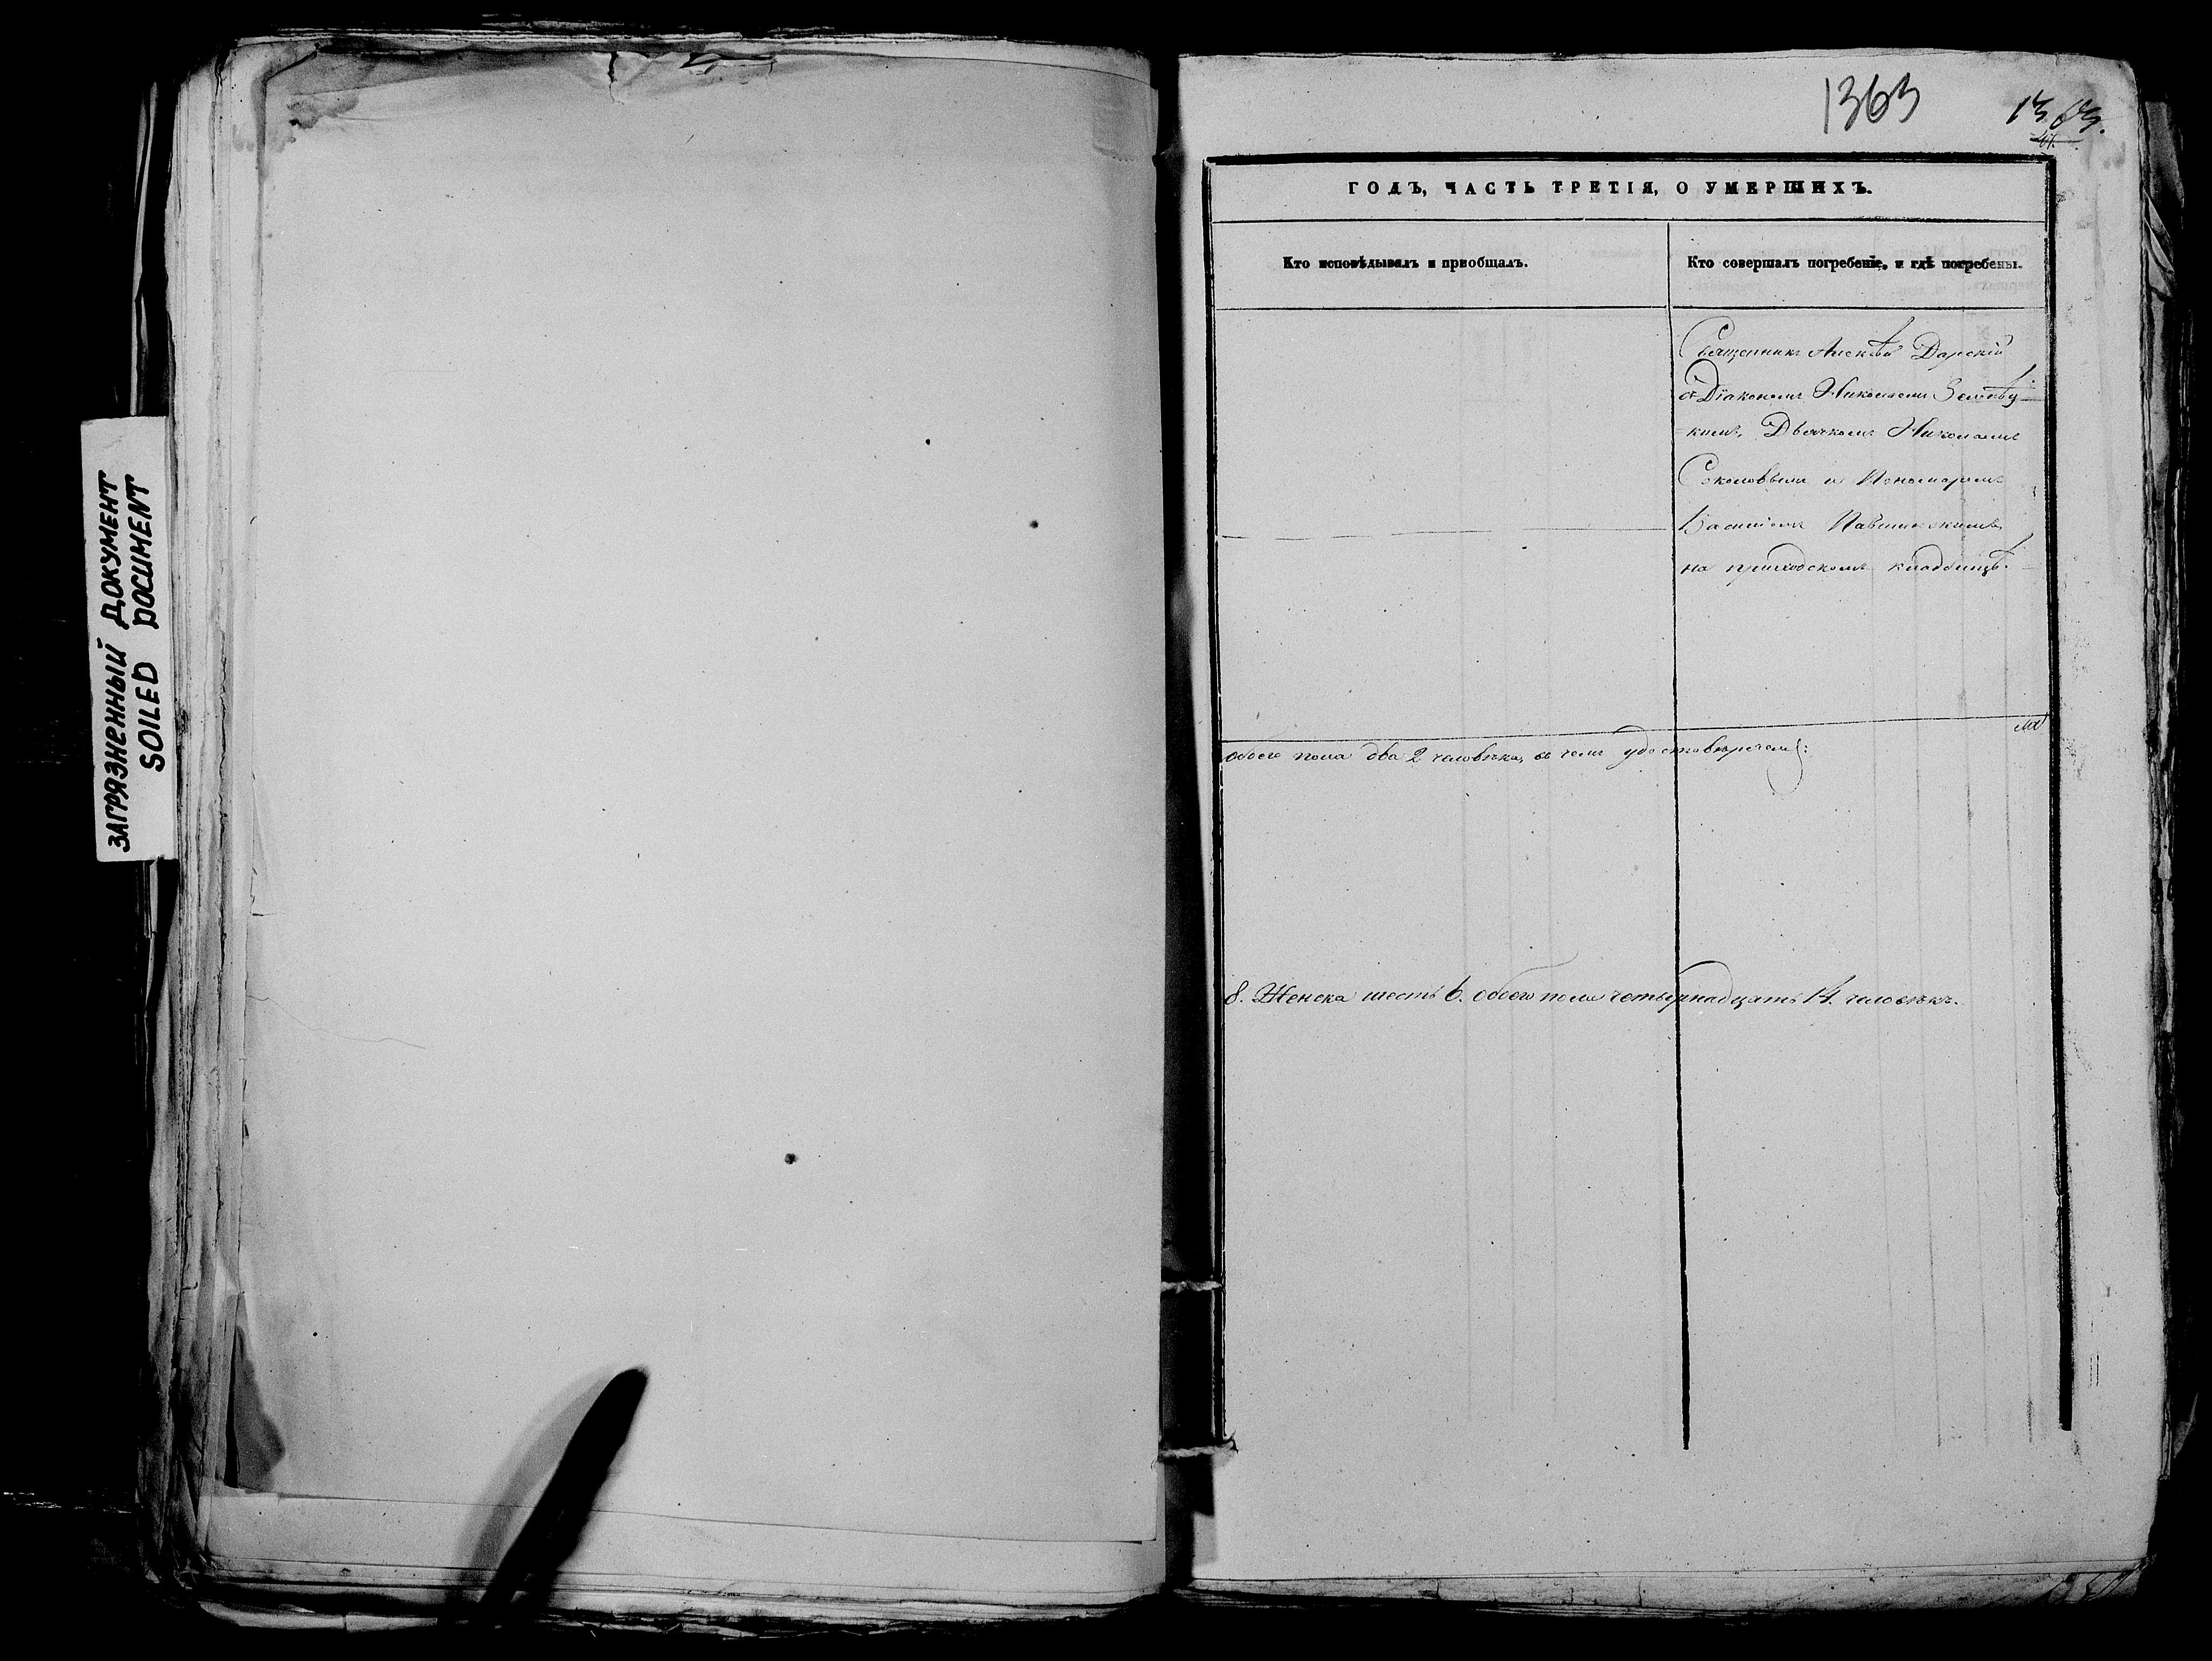 ЗАГРЯЗНЕННЫЙ ДОКУМЕНТ
SOILED DOCUMENT
1363
1363.
ГОДЪ, ЧАСТЬ ТРЕТІЯ, О УМЕРШИХЪ.
Кто исповѣдывалъ и пріобщалъ.
Кто совершалъ погребеніе, и гдѣ погребены.
Священникъ Алексѣй Дарскій
съ Діакономъ Николаемъ
кимъ, Дьячкомъ Николаемъ
Соколовымъ и Пономаремъ
Василіемъ Павлинскимъ
на приходскомъ кладбищѣ.
обоего пола два 2 человѣка, въ чемъ удостовѣряемъ:
8. Женска шесть 6. обоего пола четырнадцать 14. человѣкъ.